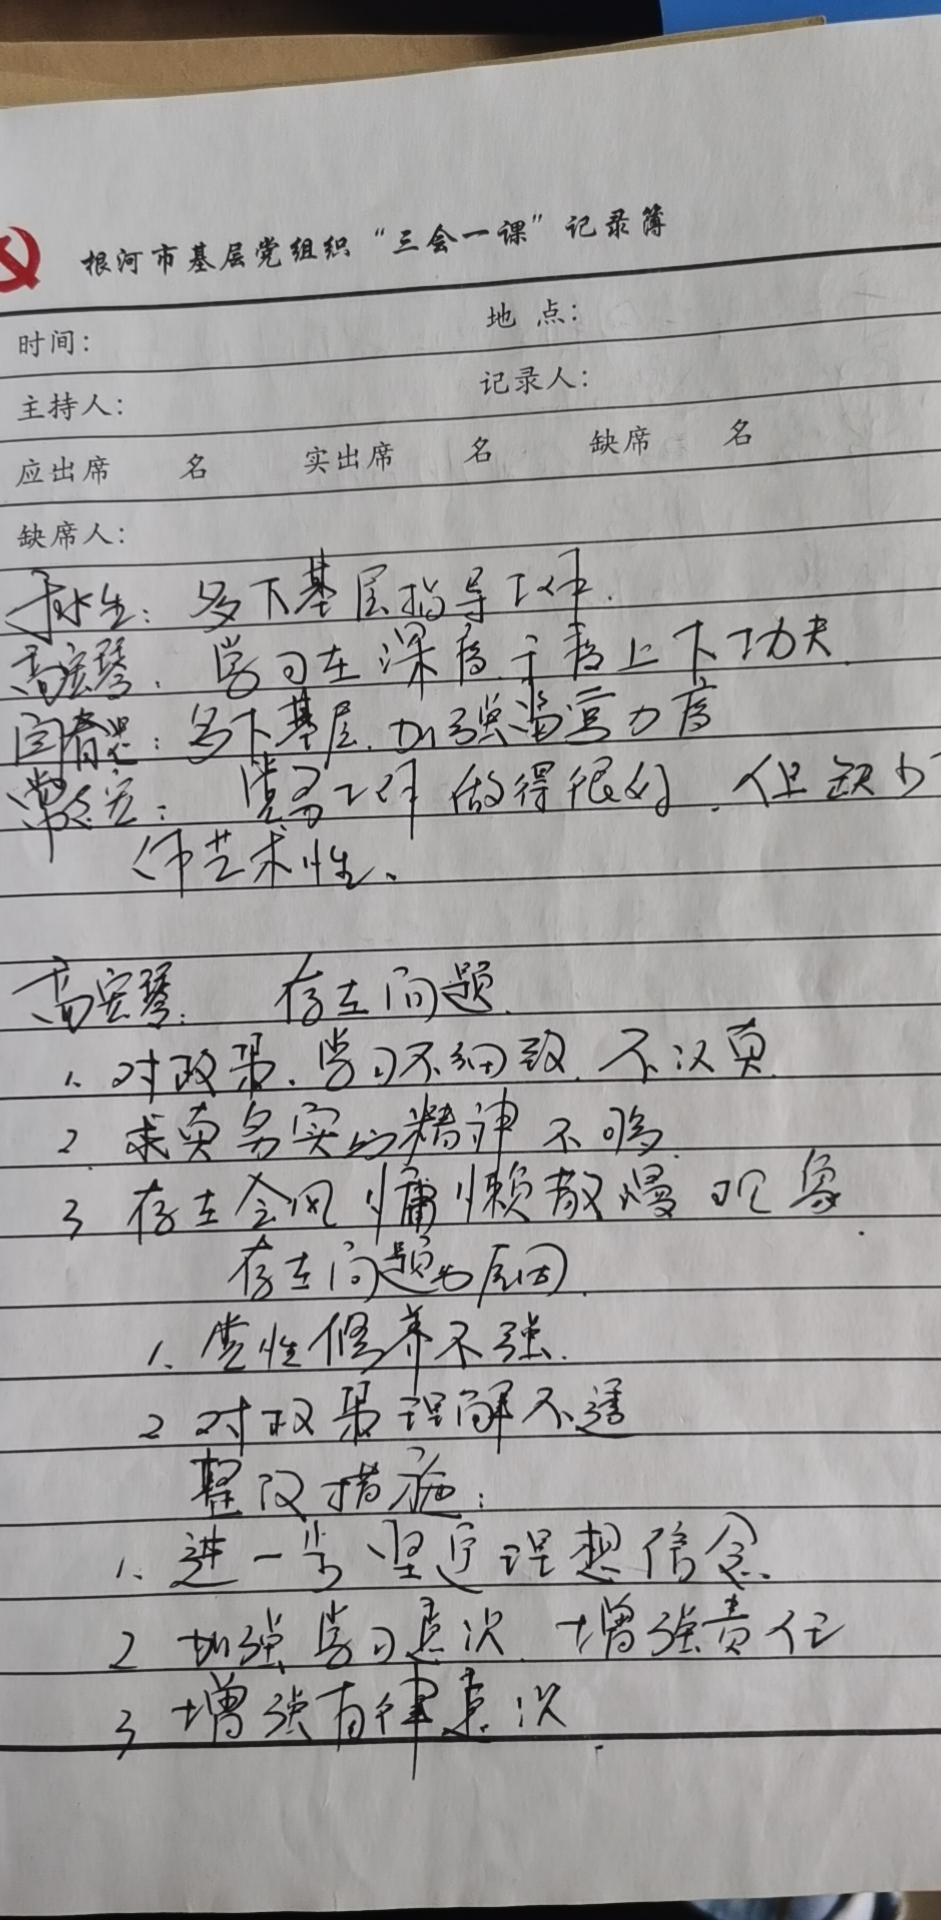 根河市基层党组织“三会一课”记录簿
时间： 地 点：
主持人： 记录人：
应出席 名 实出席 名 缺席 名
缺席人：
生：多下基层指导工作.
高宏琴. 学习在深度于度上下功夫.
多下基层.加强 力度
工作做得很好.但缺少
工作艺术性、
高宏琴. 存在问题.
1、对政策、学习不细致.不认真
2、求真务实的精神不够.
3 存在会风慵懒散慢现象.
存在问题的原因.
1、党性修养不强.
2 对政策理解不透
整改措施：
1、进一步坚定理想信念
2 加强学习意识.增强责任
3 增强自律意识.